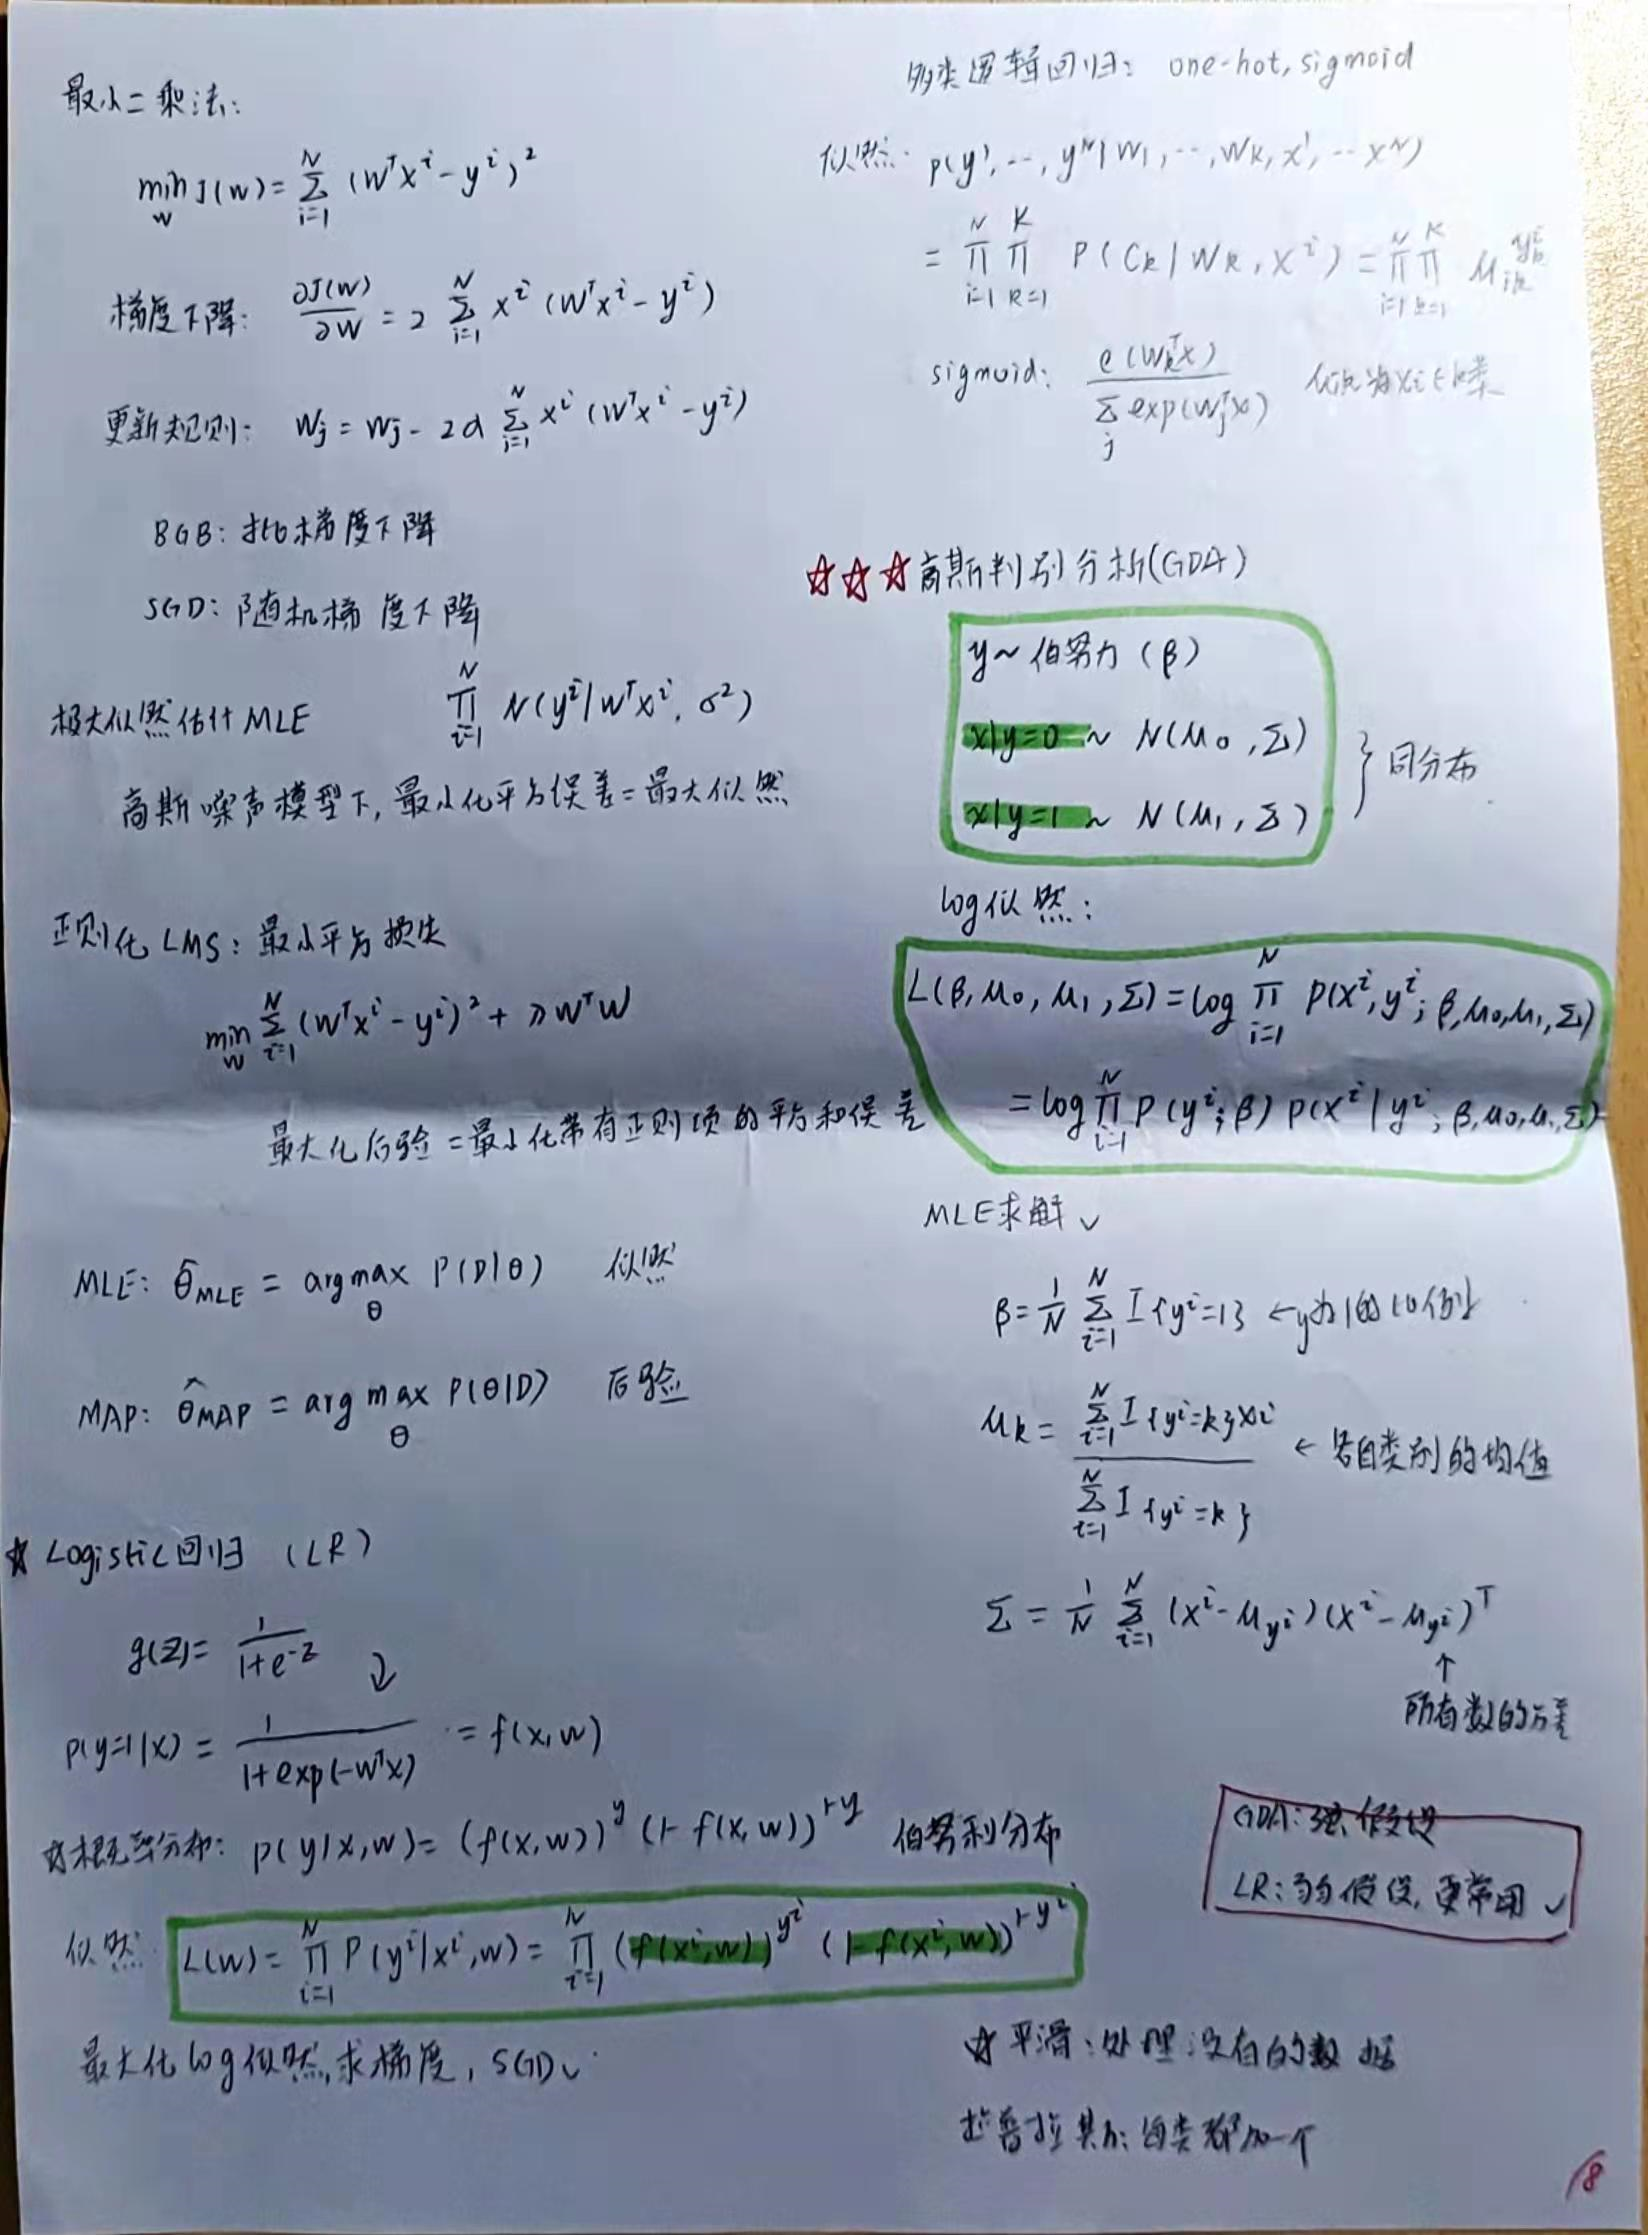 最小二乘法:
min_w J(w) = Σ_{i=1}^{N} (w^T x^i - y^i)^2
梯度下降: ∂J(w)/∂w = 2 Σ_{i=1}^{N} x^i (w^T x^i - y^i)
更新规则: w_j = w_j - 2α Σ_{i=1}^{N} x^i (w^T x^i - y^i)
BGB: 批梯度下降
SGD: 随机梯度下降
极大似然估计 MLE ∏_{i=1}^{N} N(y^i | w^T x^i, σ^2)
高斯噪声模型下, 最小化平方误差 = 最大似然
正则化 LMS: 最小平方损失
min_w Σ_{i=1}^{N} (w^T x^i - y^i)^2 + λ w^T w
最大化后验 = 最小化带有正则项的平方和误差
MLE: θ̂_MLE = argmax_θ P(D|θ) 似然
MAP: θ̂_MAP = arg max_θ P(θ|D) 后验
☆ Logistic回归 (LR)
g(z) = 1/(1+e^{-z})
P(y=1|x) = 1/(1+exp(-w^T x)) = f(x,w)
☆概率分布: P(y|x,w) = (f(x,w))^y (1-f(x,w))^{1-y} 伯努利分布
似然: L(w) = ∏_{i=1}^{N} P(y^i|x^i,w) = ∏_{i=1}^{N} (f(x^i,w))^{y^i} (1-f(x^i,w))^{1-y^i}
最大化log似然, 求梯度, SGD✓
多类逻辑回归: one-hot, sigmoid
似然: P(y^1, ..., y^N | w_1, ..., w_k, x^1, ... x^N)
= ∏_{i=1}^{N} ∏_{k=1}^{K} P(C_k | w_k, x^i) = ∏_{i=1}^{N} ∏_{k=1}^{K} μ_{ik}^{y_k^i}
sigmoid: e(w_k^T x) / Σ_j exp(w_j^T x) 为x_i∈k类
☆☆☆高斯判别分析(GDA)
y ~ 伯努力 (β)
x|y=0 ~ N(μ_0, Σ)
x|y=1 ~ N(μ_1, Σ)
} 同分布
log似然:
L(β, μ_0, μ_1, Σ) = log ∏_{i=1}^{N} P(x^i, y^i; β, μ_0, μ_1, Σ)
= log ∏_{i=1}^{N} P(y^i; β) P(x^i | y^i; β, μ_0, μ_1, Σ)
MLE求解✓
β = 1/N Σ_{i=1}^{N} I{y^i=1} ← y为1的比例
μ_k = Σ_{i=1}^{N} I{y^i=k}x^i / Σ_{i=1}^{N} I{y^i=k} ← 各自类别的均值
Σ = 1/N Σ_{i=1}^{N} (x^i - μ_{y^i})(x^i - μ_{y^i})^T
↑
所有数的方差
GDA: 强假设
LR: 弱假设, 更常用 ✓
☆平滑: 处理没有的数据
拉普拉斯: 每类都加一个
18